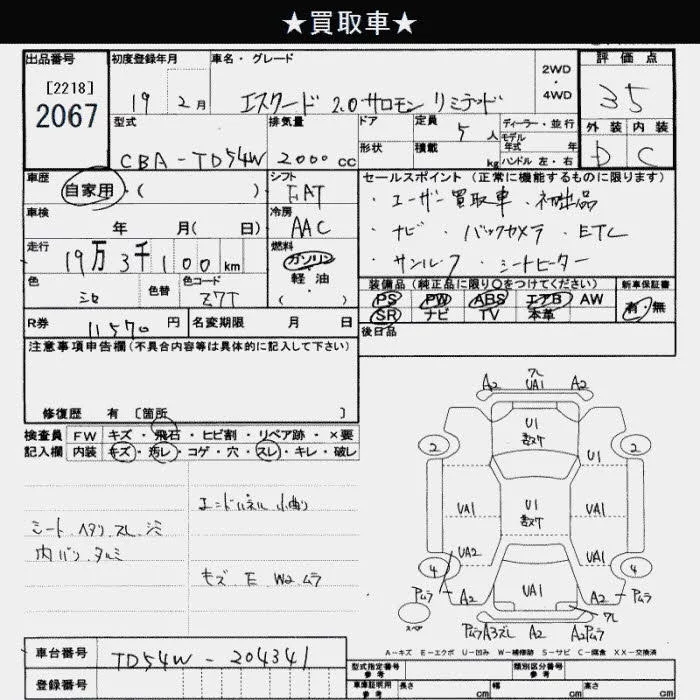 ★買取車★
出品番号
[2218]
2067
初度登録年月
19 2月
車名・グレード
エスクード 2.0サロモンリミテッド
2WD
・
4WD
評価点
3.5
外装 内装
D C
型式
CBA-TD54W
排気量
2000cc
ドア
形状
定員 5人
積載 kg
ディーラー・並行
モデル
年式 年
ハンドル 左・右
車歴
自家用・( )
シフト
FAT
車検
年 月( 日)
冷房
AAC
走行
19万3千100km
燃料
ガソリン
・
軽油
・
( )
色
シロ
色替
色コード
Z7T
R券 11570円
名変期限 月 日
セールスポイント (正常に機能するものに限ります)
・ユーザー買取車・初出品
・ナビ・バックカメラ・ETC
・サンルーフ・シートヒーター
装備品(純正品に限り○をつけてください)
PS PW ABS エアB AW
SR ナビ TV 本革
新車保証書
有・無
後日品
注意事項申告欄(不具合内容等は具体的に記入して下さい)
修復歴 有 〔箇所 〕
検査員
記入欄
FW キズ・飛石・ヒビ割・リペア跡・×要
内装 キズ・汚レ・コゲ・穴・スレ・キレ・破レ
エンドパネル小曲り
シートヘタリ.スレ.シミ
内バリ.タルミ
キズ E W2.ムラ
ワレ
A2 UA1 A2
2 U1 2
数ヶ
U1
UA1 U1 UA1
数ヶ
UA2 UA1
4 4
UA1
Pムラ A2 A2 Pムラ
ワレ
スペア
Pムラ A3ズレ A2 A2Pムラ
A-キズ E-エクボ U-凹み W-補修跡 S-サビ C-腐食 XX-交換済
車台番号 TD54W-204341
登録番号
型式指定番号
参考
類別区分番号
参考
車庫証明用
参考
長さ cm 幅 cm 高さ cm